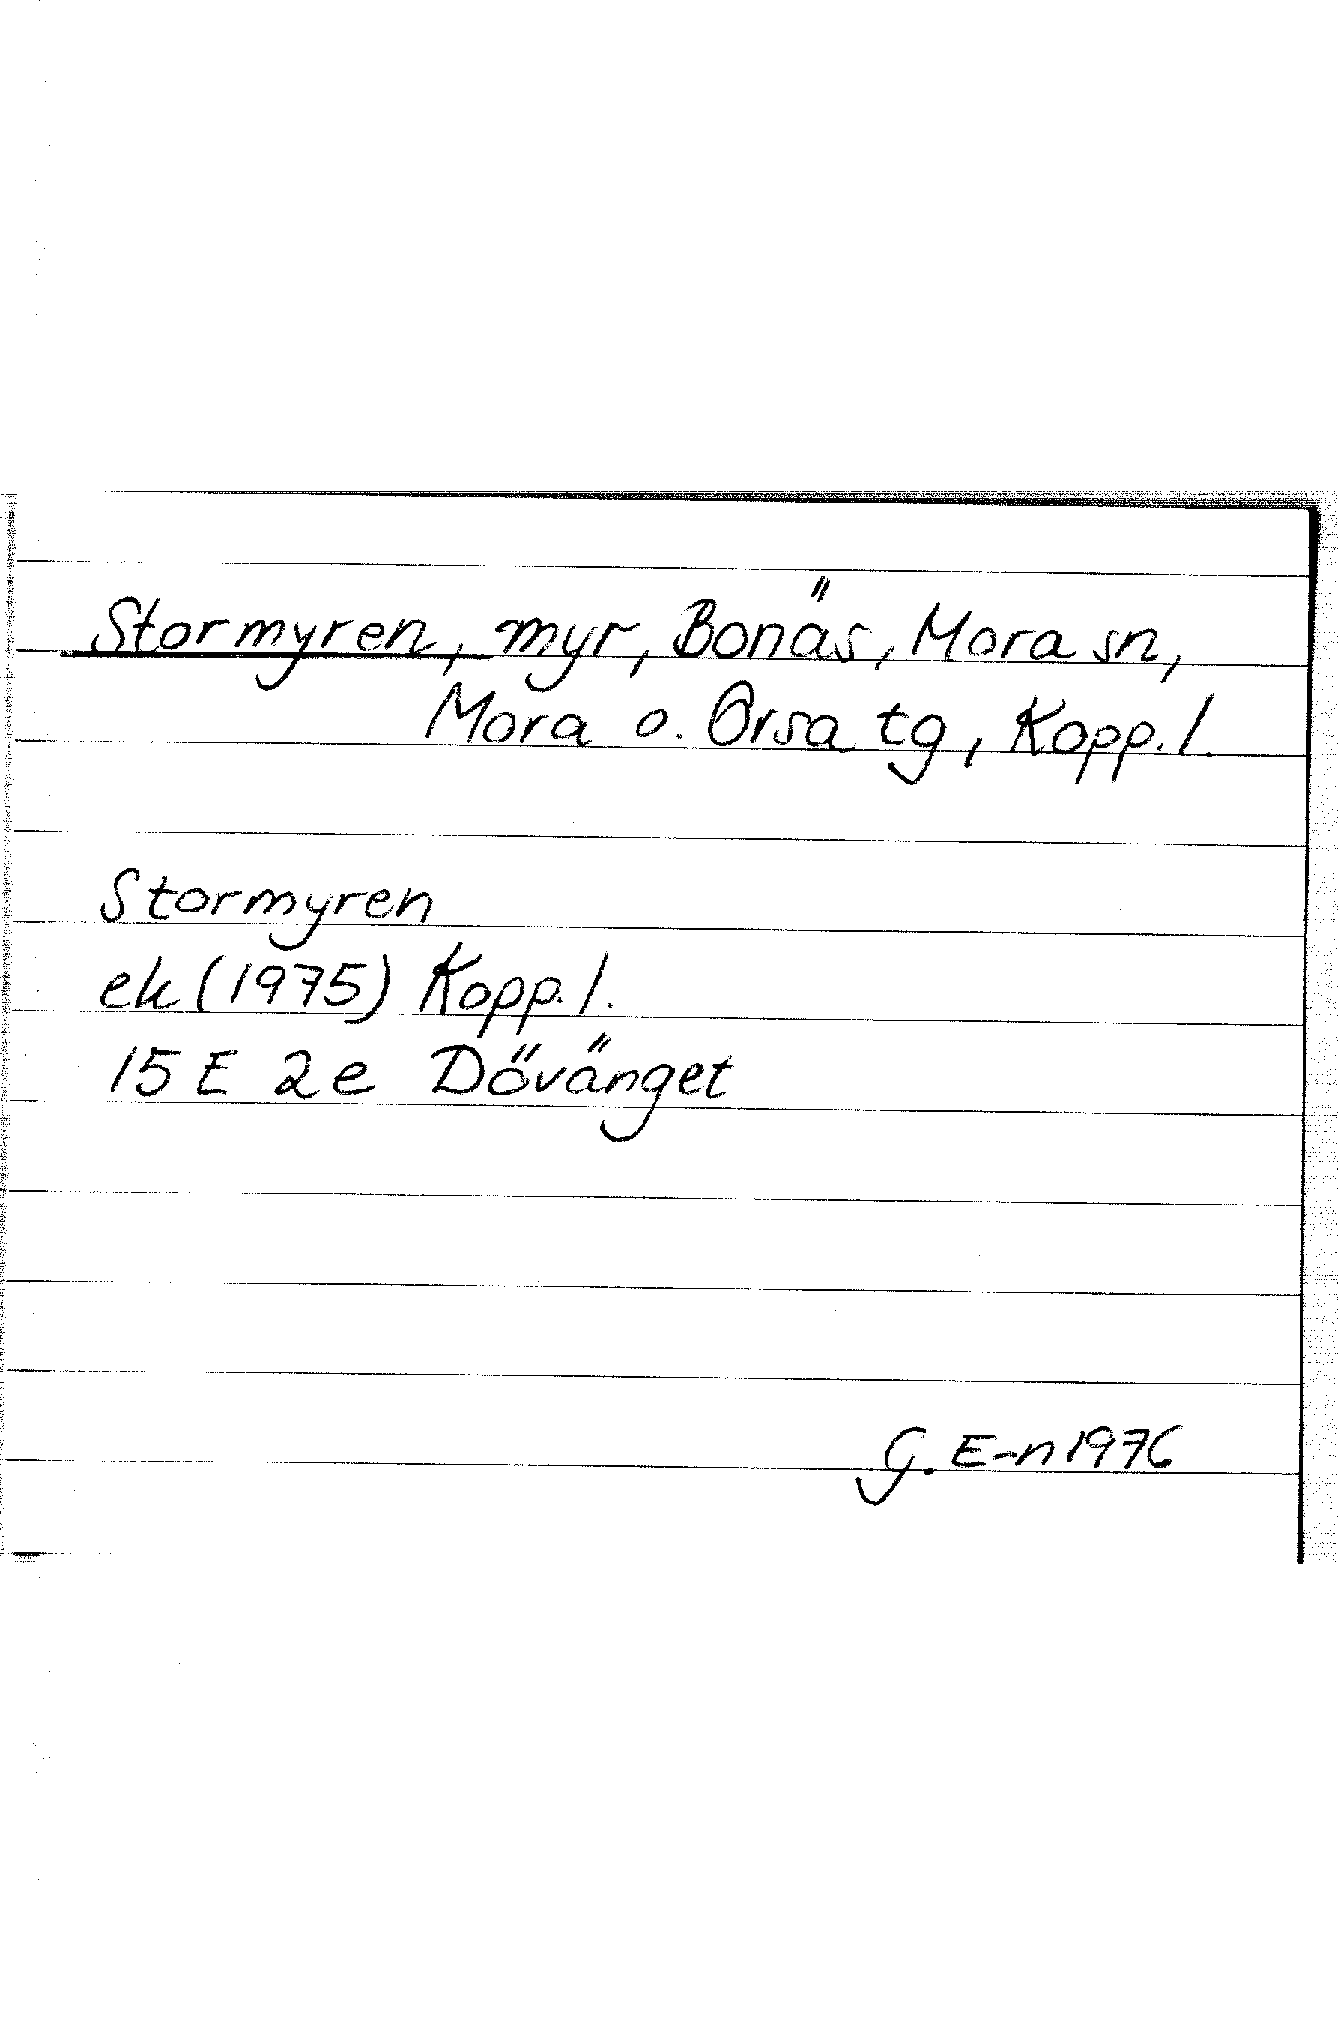 Stormyren, myr, Bonäs, Mora sn,
Mora o. Orsa tg, Kopp. l.
Stormyren
ek (1975) Kopp. l.
15 E 2e Dövänget
G. E-n 1976